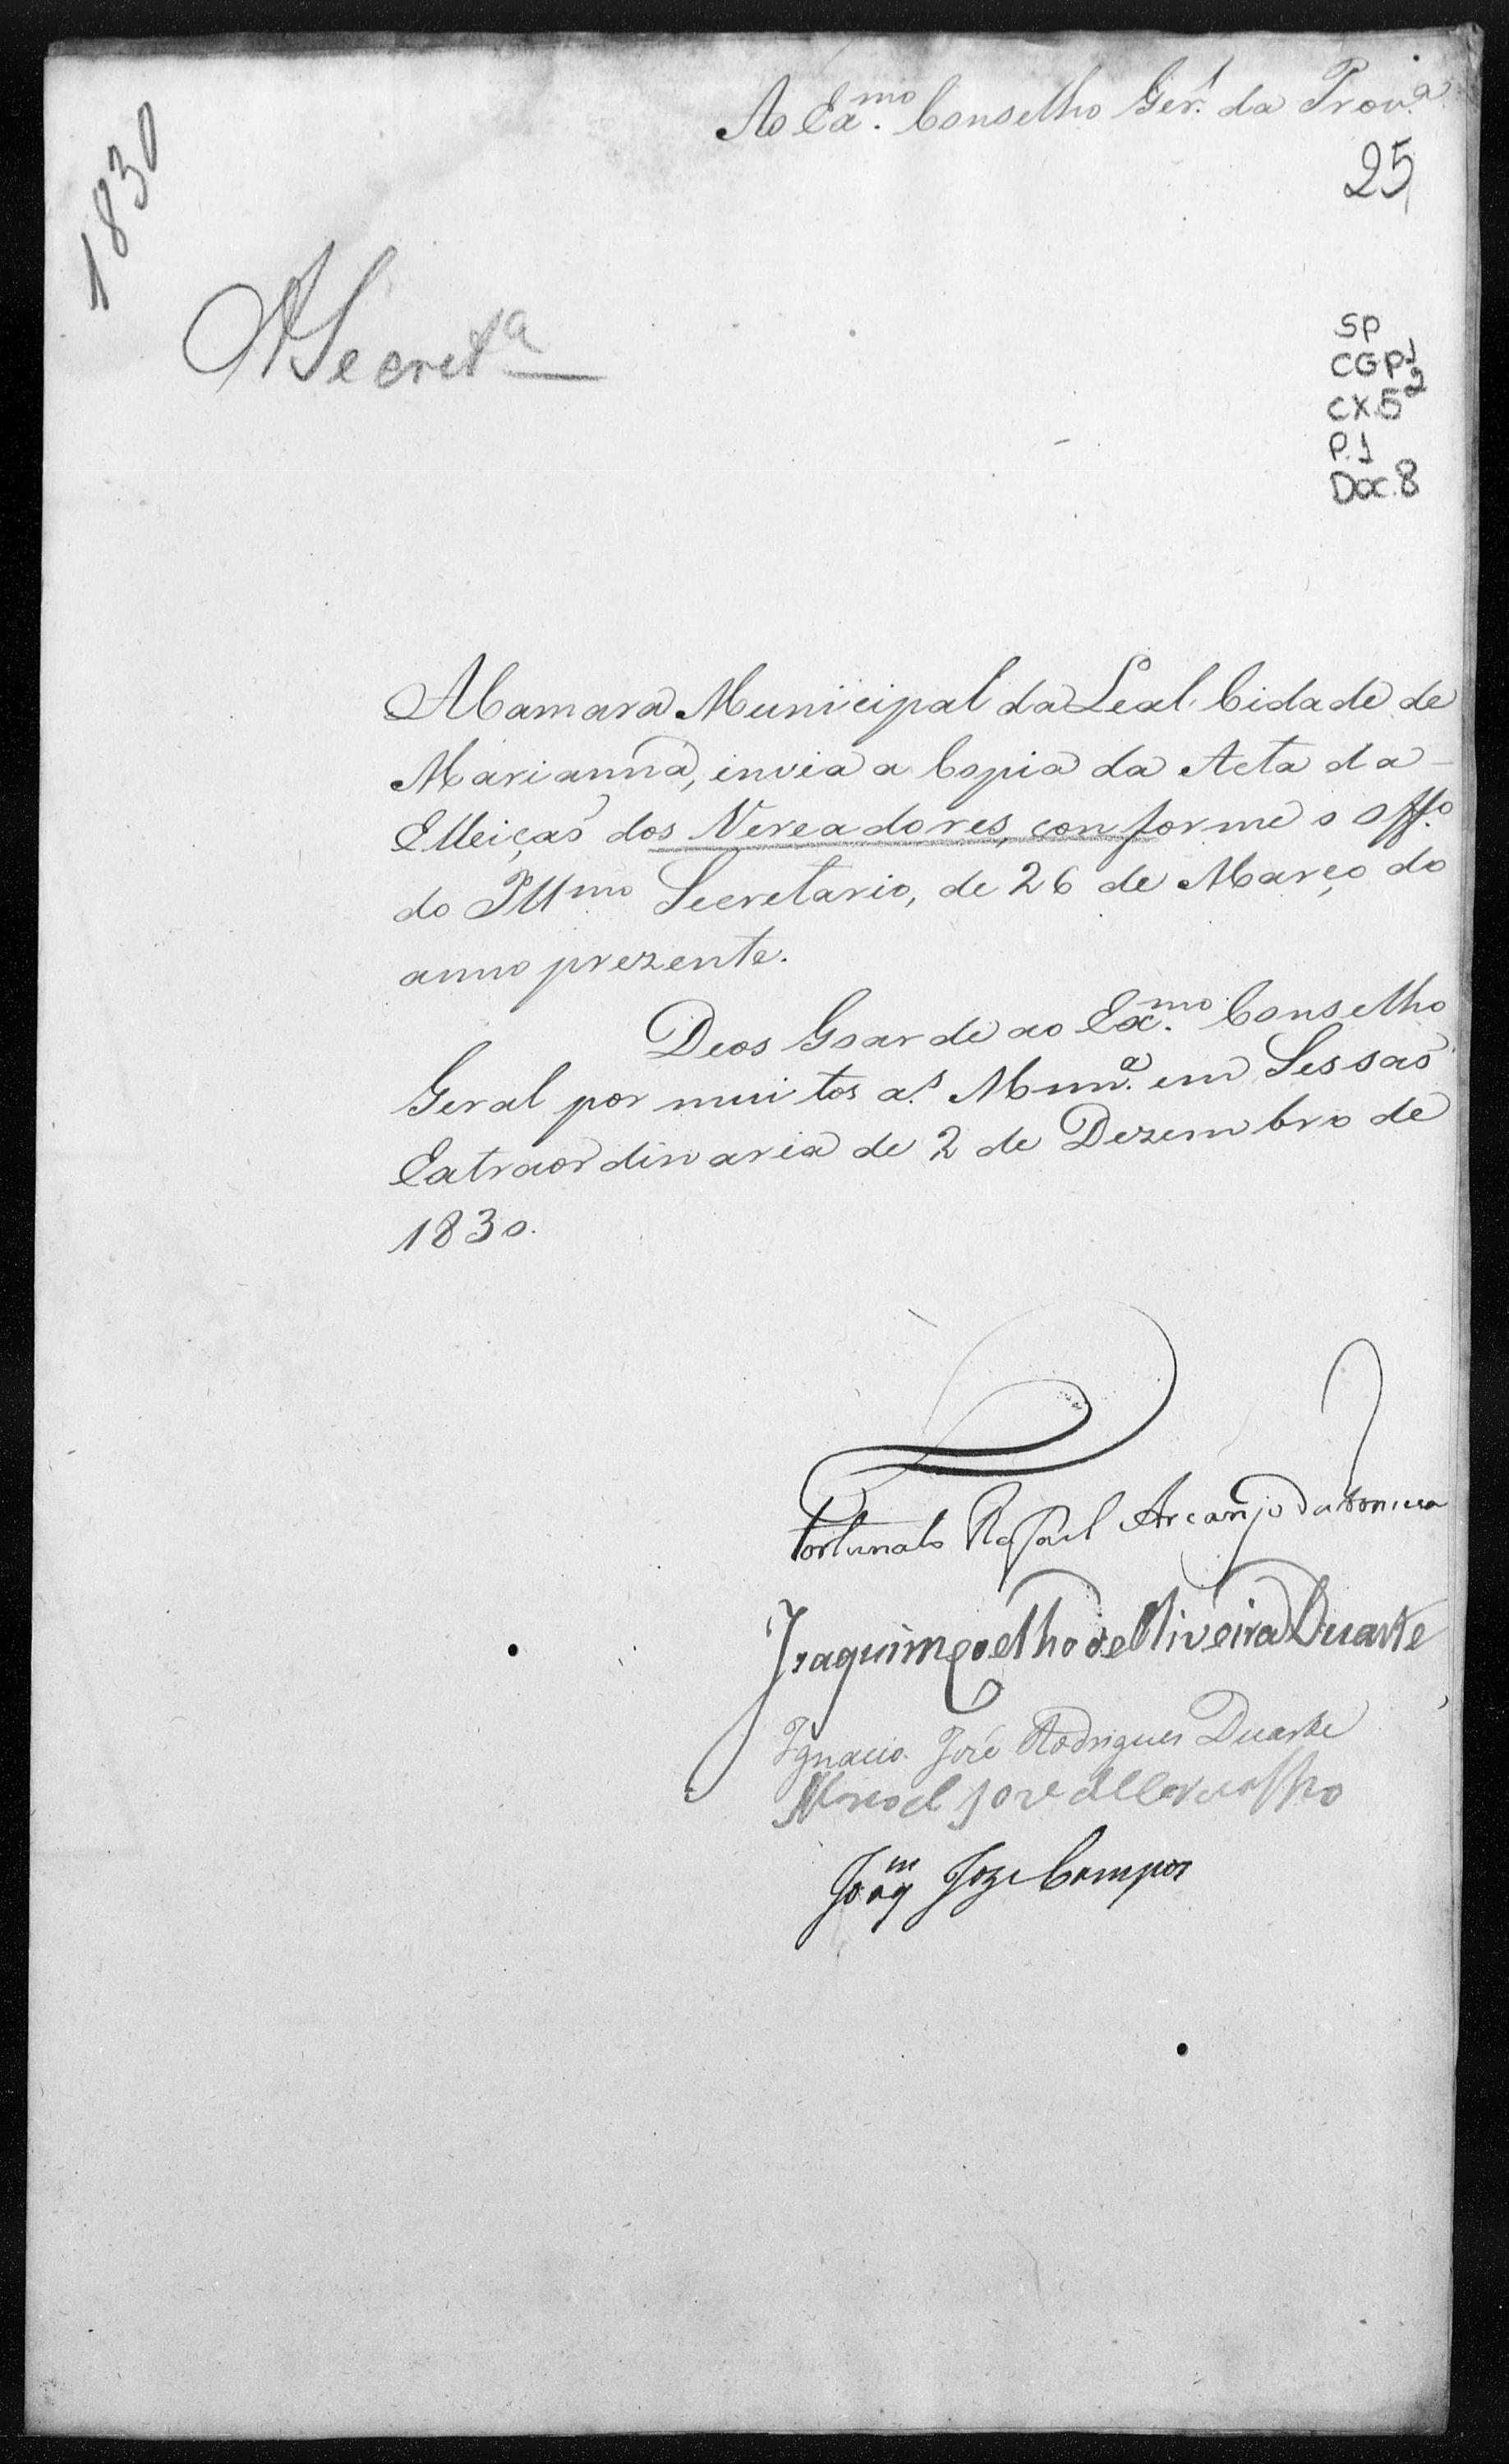 Ao Ex.mo Conselho Ger.l da Prov.a
1830
25
A Secret.a
SP
CGP1
2
CX.5
P.1
Doc.8
A Camara Municipal da Leal Cidade de
Marianna, invia a Copia da Acta da
Elleiçaõ dos Vereadores, conforme o Off.o
do Illmo Secretario, de 26 de Março do
anno prezente.
Deos Goarde ao Ex.mo Conselho
Geral por muitos a.s Mnn.a em Sessaõ
Extraordinaria de 2 de Dezembro de
1830.
Fortunato Rafael Arcanjo da Fonseca
Joaquim Coelho de Oliveira Duarte
Ignacio José Rodrigues Duarte
Manoel José de Carvalho
Joaqm Joze Campos